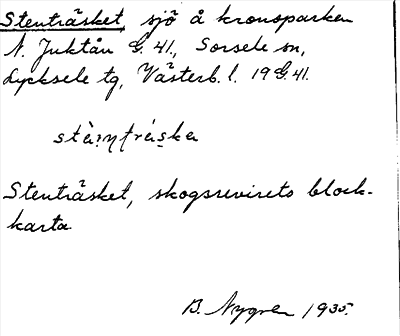 Stenträsket, sjö å kronoparken
N. Juktån G. 41., Sorsele sn,
Lycksele tg, Västerb. l. 19 G. 41.
Stenträsket, skogsrevirets block-
karta
B. Nygren 1935.